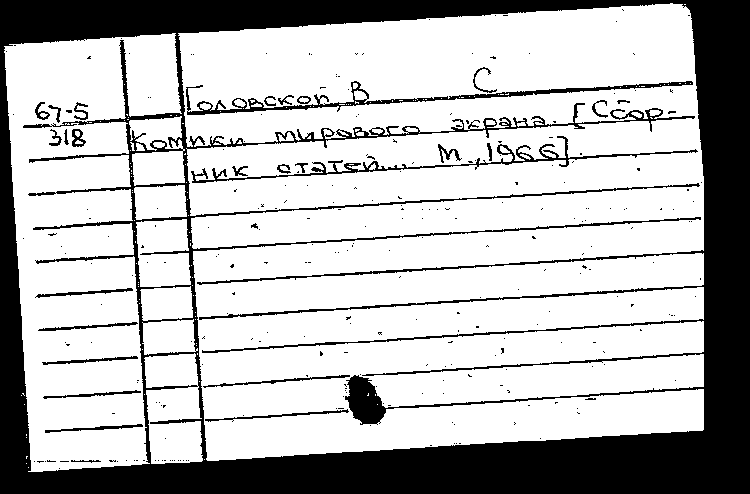 Головской, В С
67-5
318
Комики мирового экрана. [Сбор-
ник статей... М., 1966].